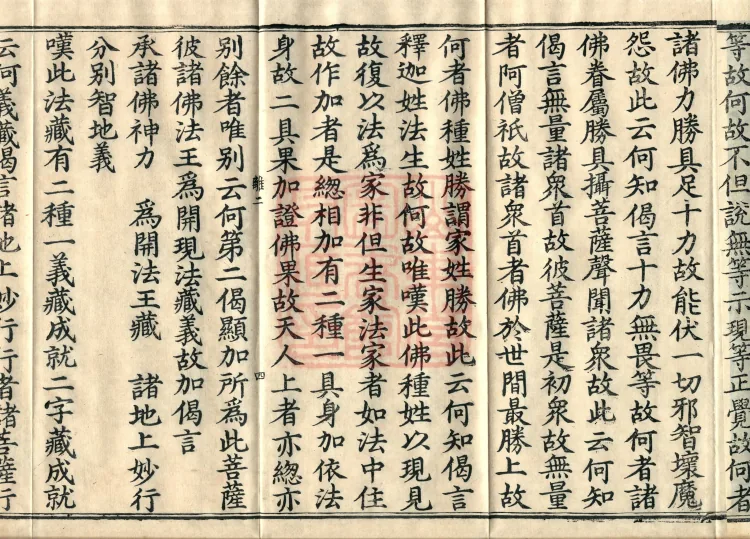 等故何故不但説無等示現等正覺故何者
諸佛力勝具足十力故能伏一切邪智壞魔
怨故此云何知偈言十力無畏等故何者諸
佛眷屬勝具攝菩薩聲聞諸衆故此云何知
偈言無量諸衆首故彼菩薩是初衆故無量
者阿僧祇故諸衆首者佛於世間最勝上故
何者佛種姓勝謂家姓勝故此云何知偈言
釋迦姓法生故何故唯嘆此佛種姓以現見
故復以法爲家非但生家法家者如法中住
故作加者是緫相加有二種一具身加依法
身故二具果加證佛果故天人上者亦緫亦
離二
四
別餘者唯別云何第二偈顯加所爲此菩薩
彼諸佛法王爲開現法藏義故加偈言
承諸佛神力　爲開法王藏　諸地上妙行
分別智地義
嘆此法藏有二種一義藏成就二字藏成就
云何義藏偈言諸地上妙行行者諸菩薩行